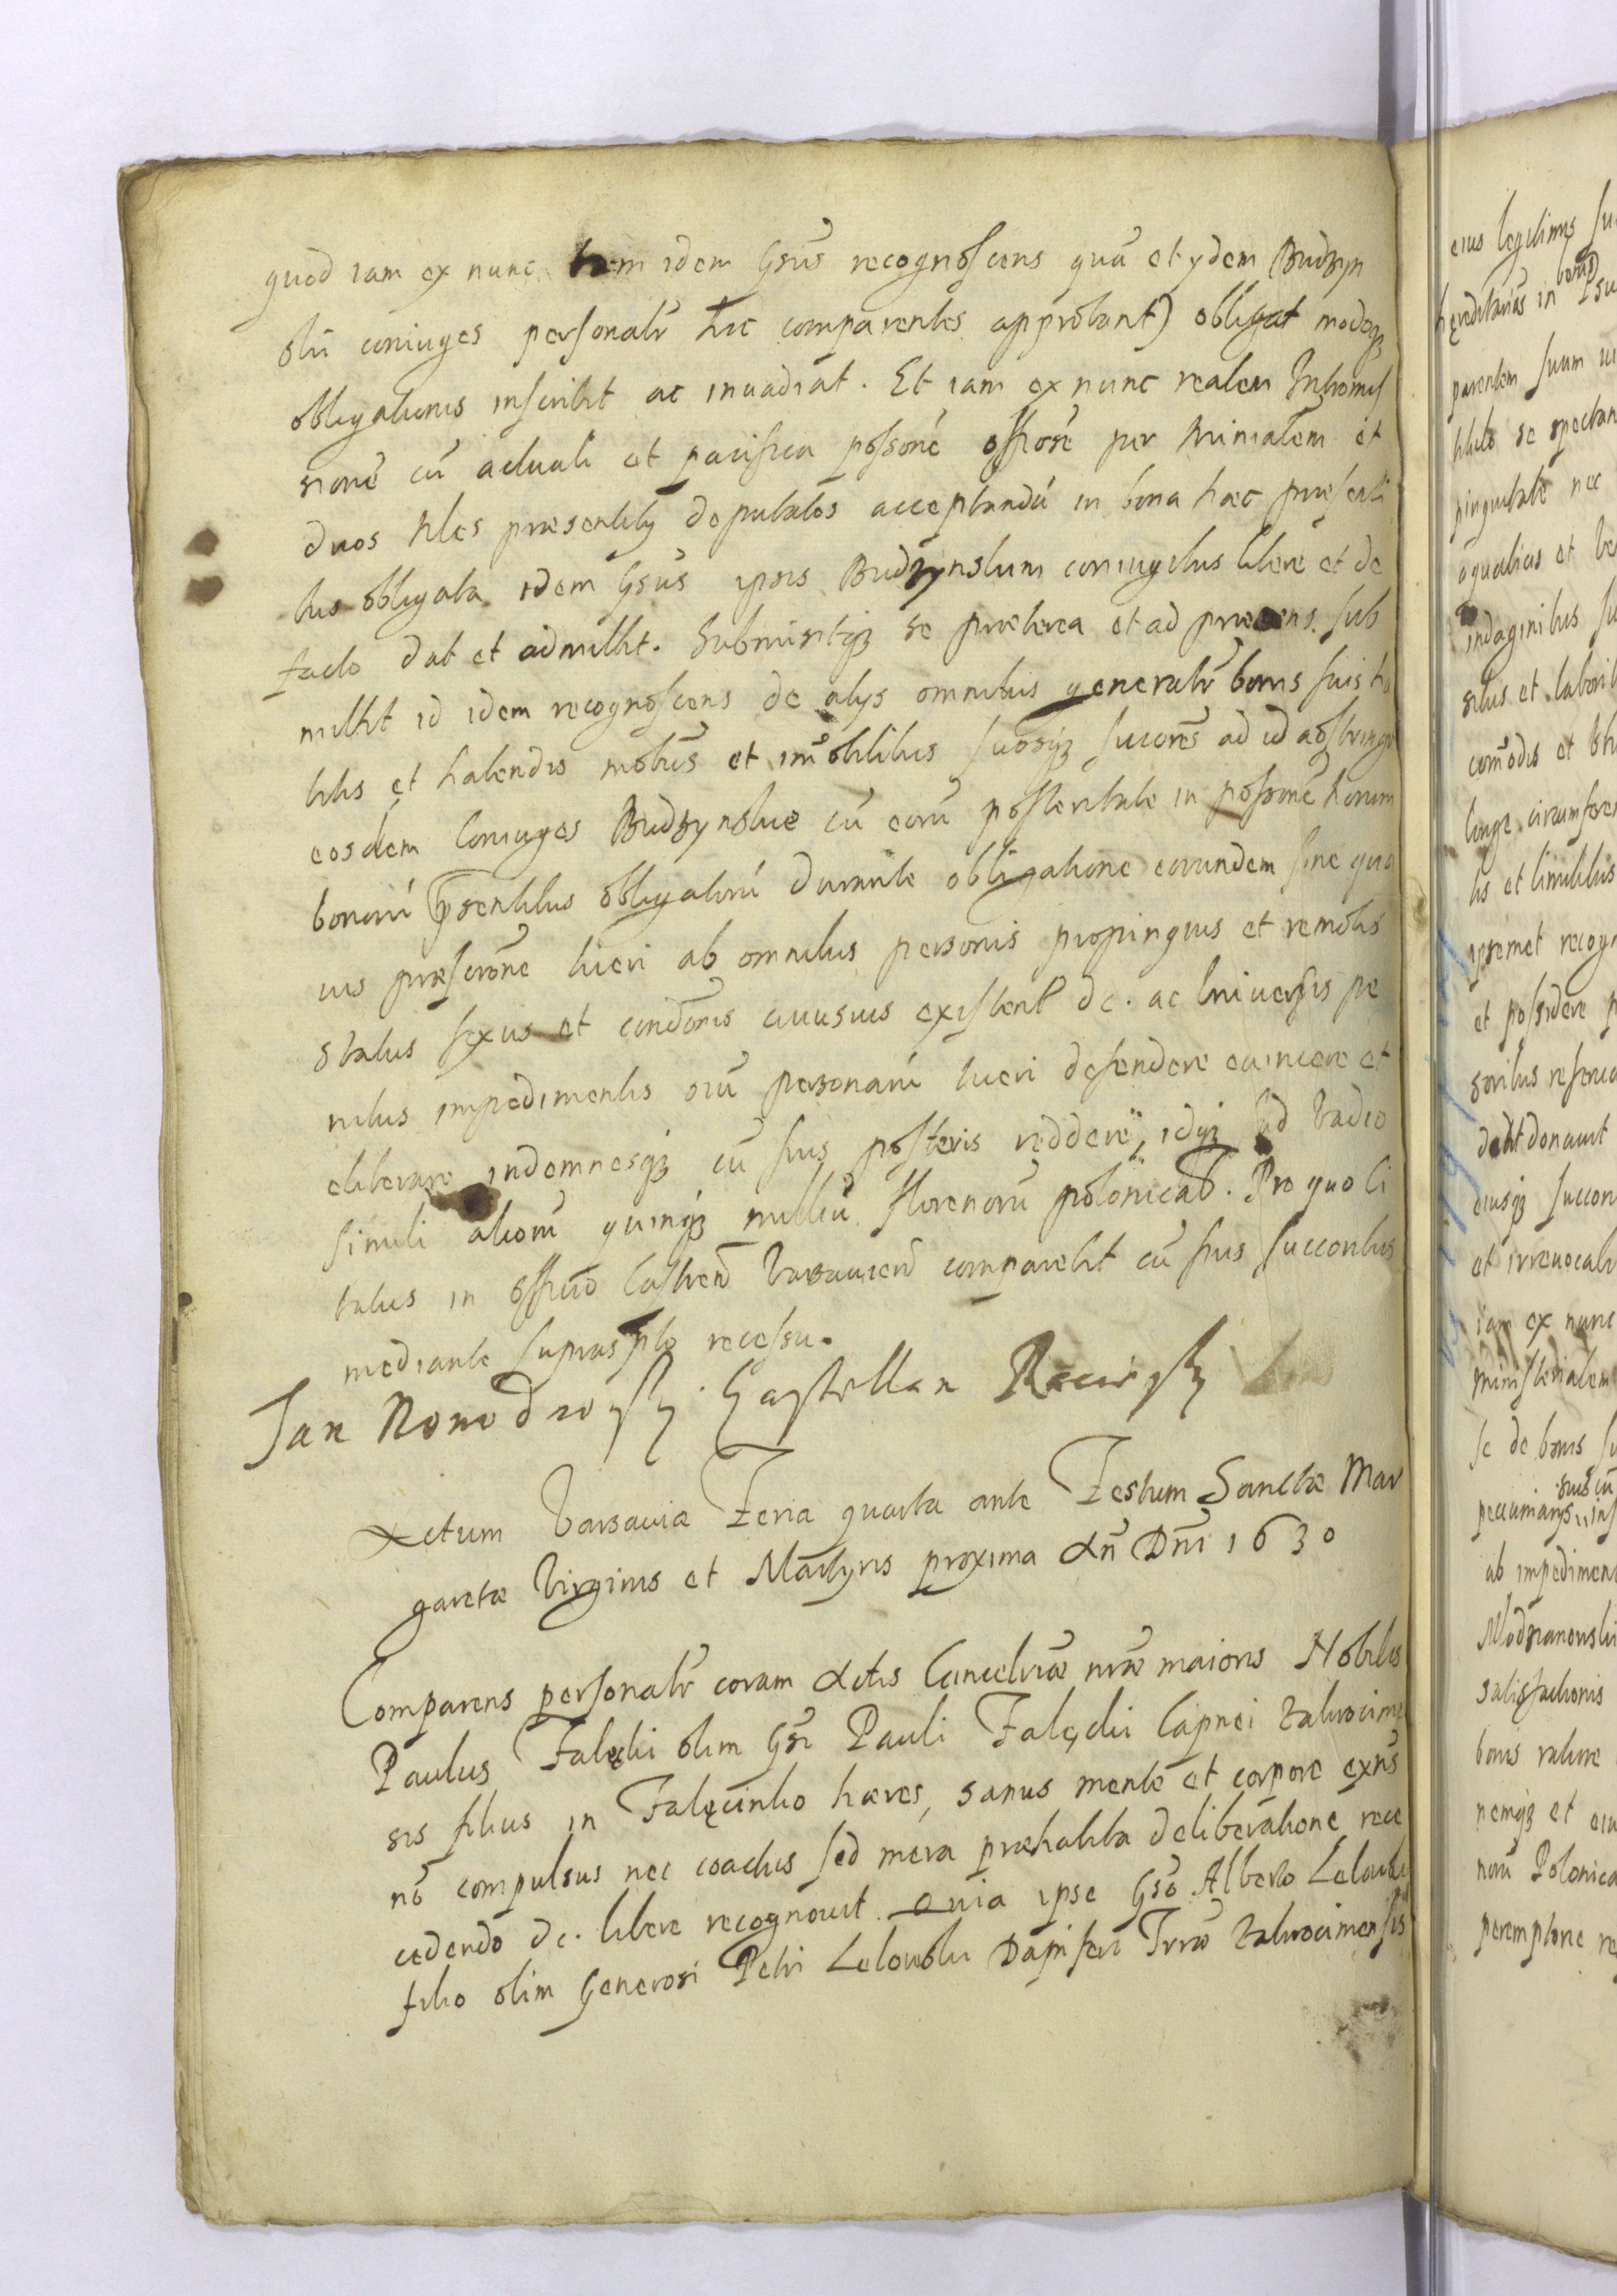 quod iam ex nunc tam idem Gsus recognoscens quã et ydem Budzyn
skii coniuges personalr hic comparentes approbant) obligat modoq3
obligationis inscribit ac inuadiat. Et iam ex nunc realem Intromis
sionẽ cũ actuali et pacifica possone per Minialem et
duos Nles praesentibq deputatos acceptandã in bona haec praesenti
bus obligata idem Gsus ipsis Budzynskim coniugibus libere et de
facto dat et admittit. Submisitq3 se praeterea et ad praesens sub
mittit id idem recognoscens de alys omnibus generalr bonis suis ha
bitis et habendis mobus et imobilibus suosq3 sucores ad id adstringit
eosdem Coniuges Budzynskie cũ eorũ posteritate in possone horum
bonorũ pṝsentibus obligatorũ durante obligatione eorundem sine quo
uis praescrone tueri ab omnibus personis propinquis et remotis
status sexus et condonis cuiusuis existent dc. ac Vniuersis pe
nitus impedimentis oiũ personarũ tueri defendere euincere et
eliberare indemnesq3 cũ suis posteris reddere, idq3 sub Vadio
simili aliorũ quinq3 milliũ florenorũ polonical. Pro quo ci
tatus in officio Castren Varsauien comparebit cũ suis succoribus
mediante suprasṗto recessu.
Jan Nowodworsky Castellan
Actum Varsauiae Feria quarta ante Festum Sanctae Mar
garetae Virginis et Martyris proxima An Dni 1630
Comparens personalr coram Actis Cancelriae nrae maioris Nobilis
Paulus Falęcki olim Gsi Pauli Falęcki Capnei Zakrocimen
sis filius in Falęcinko haeres, sanus mente et corpore exns
nõ compulsus nec coactus sed mera praehabita deliberatione rece
cedendo dc. libere recognouit. Quia ipse Gso Alberto Lelowski
filio olim Generosi Petri Lelowski Dapiferi Trrae Zakrocimensis
eius legitimis su
hęreditarias in bonis Psu
parentem suum
se spectan
pinguitate nec
aqualias et
indaginibus su
siluis et laborib
comodis et
longe circumferen
tis et limitibus
ipsemet recogn
et possidere p
soribus reseruat
dedit donauit
eiusq3 succor
et irreuocalr
iam ex nunc
ministerialem
se de bonis su
suis cu
pecuniarys ins
ab impediment
Modzianowski
satisfactionis
bonis ratione
nemq3 et
norũ Polonica
peremptorie re